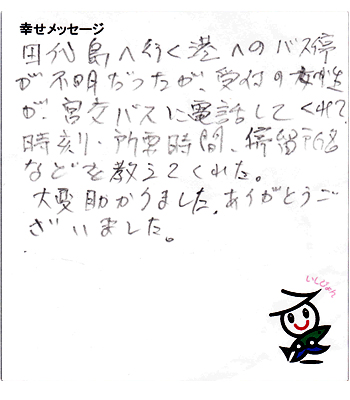 幸せメッセージ
田代島へ行く港へのバス停
が不明だったが、受付の女性
が、宮交バスに電話してくれて
時刻・所要時間、停留所名
などを教えてくれた。
大変助かりました。ありがとうご
ざいました。
いしぴょん